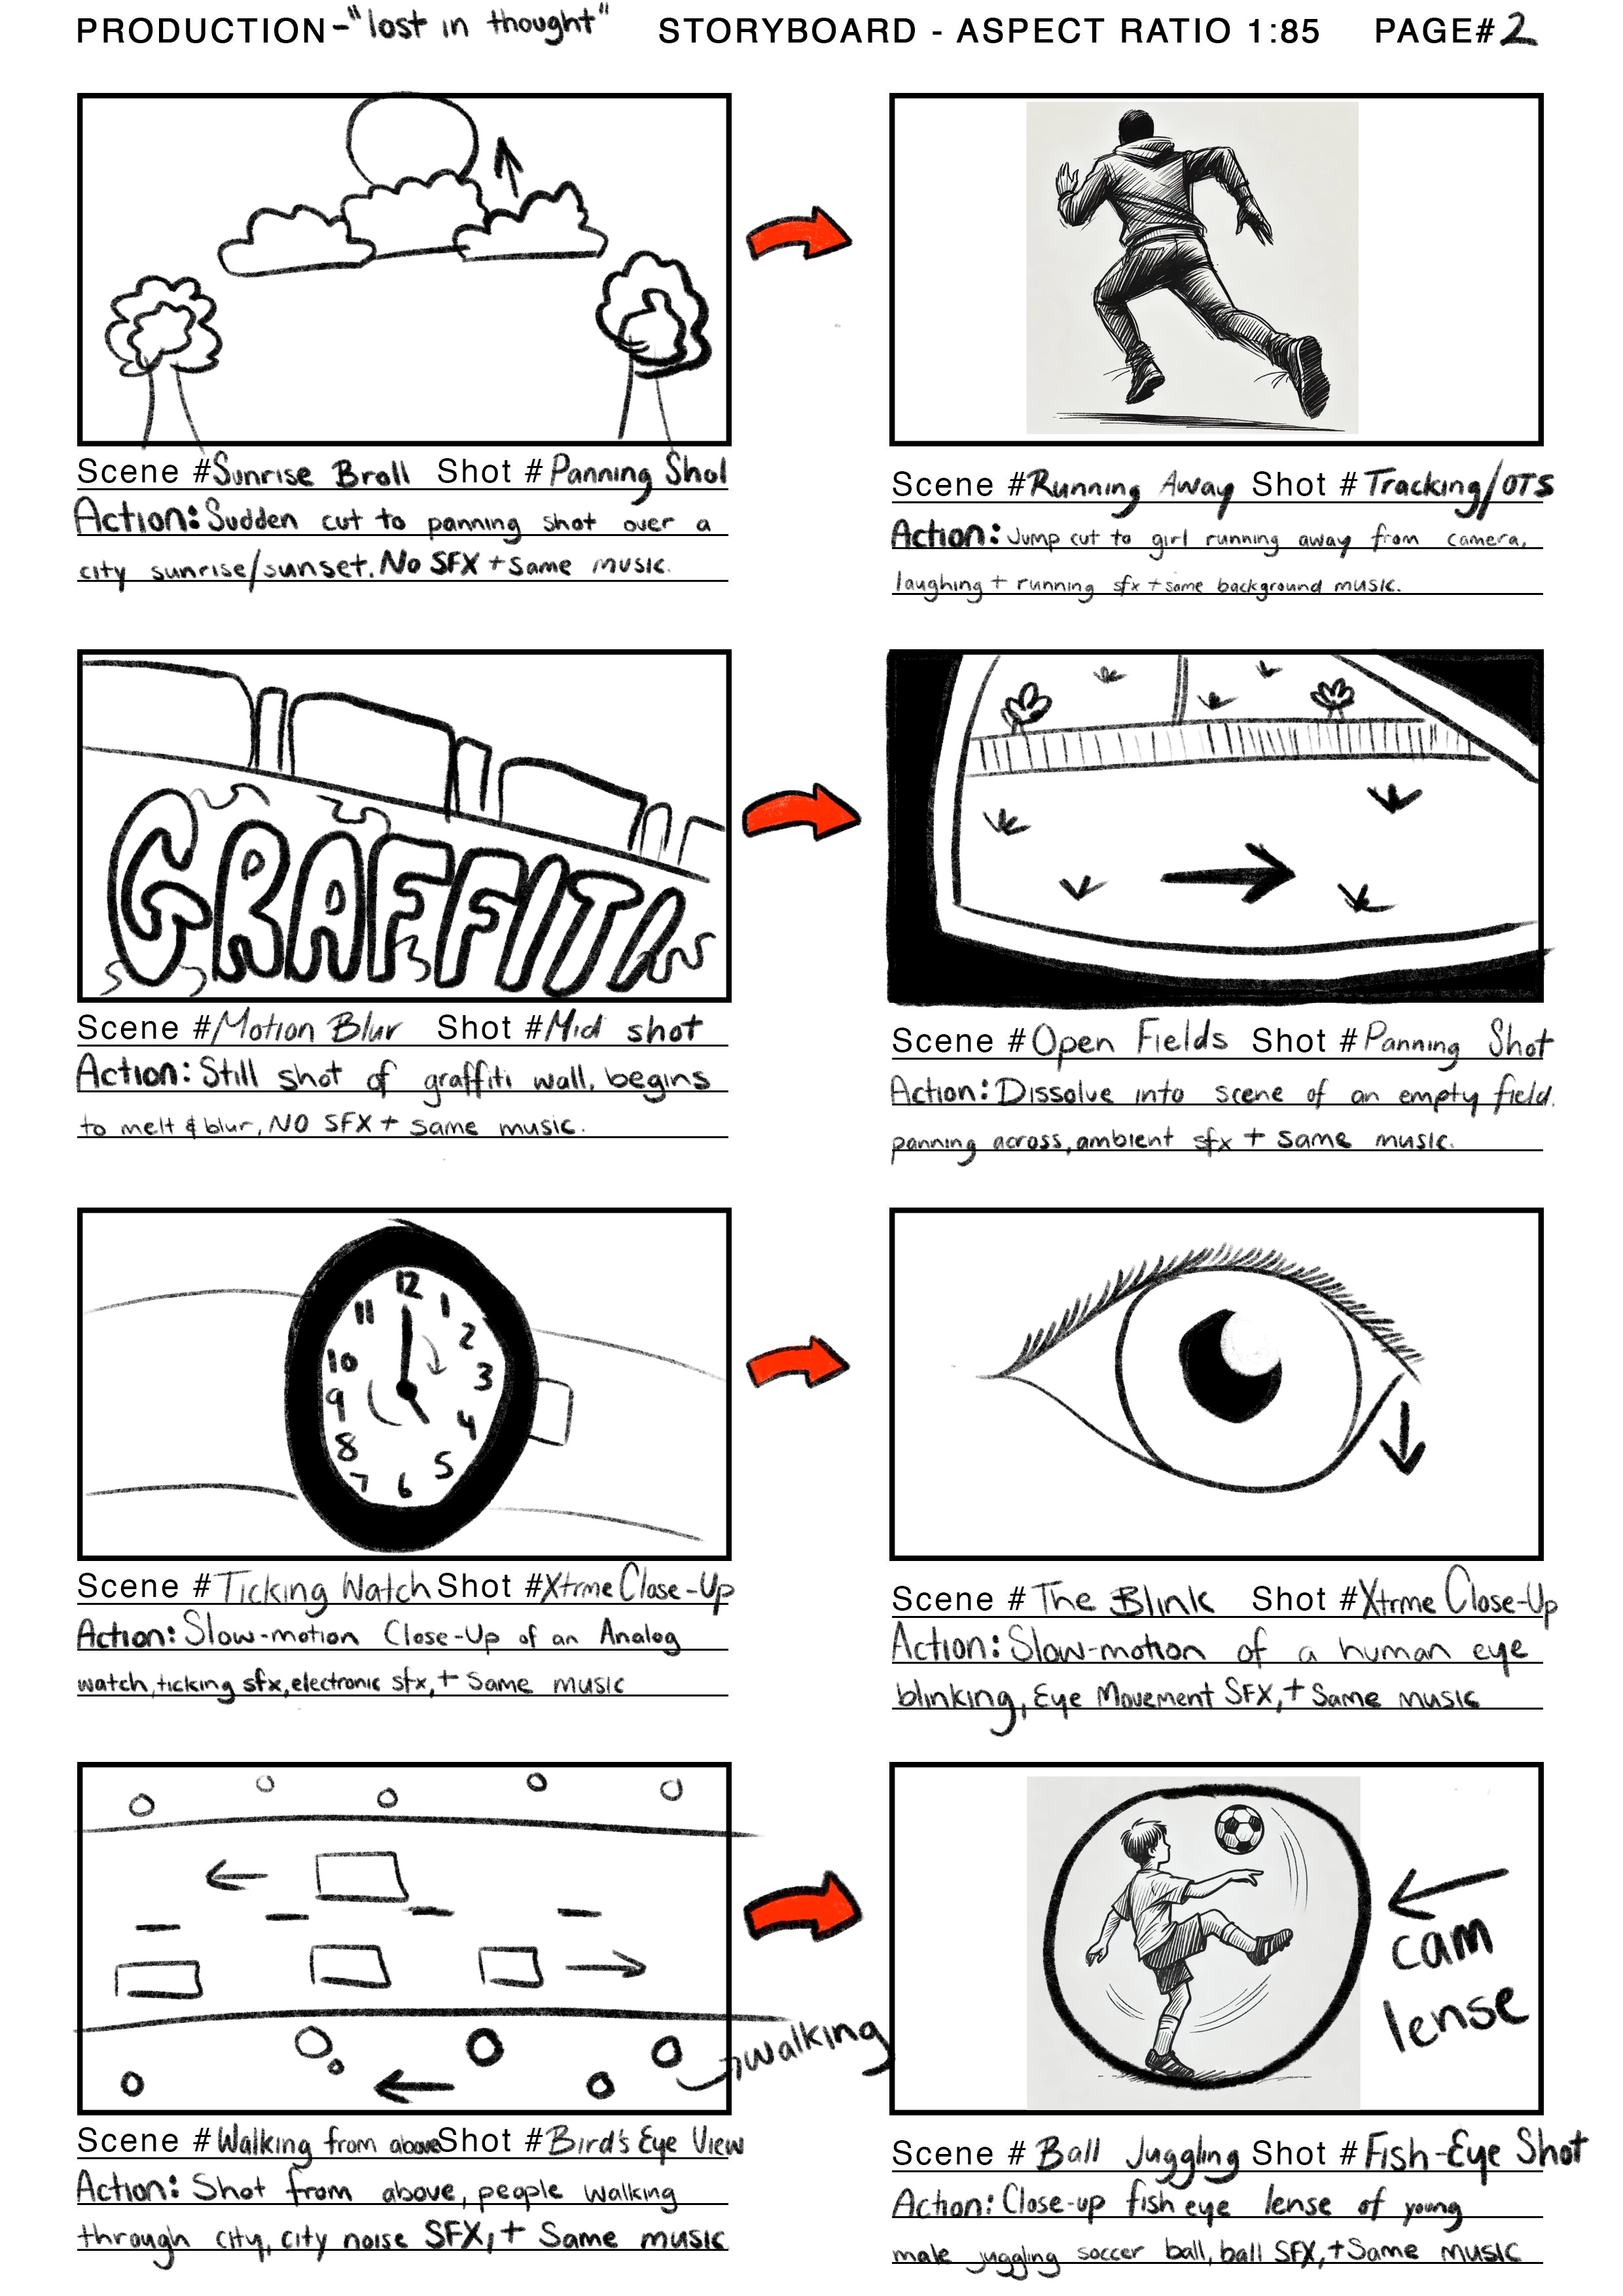 PRODUCTION-"lost in thought" STORYBOARD - ASPECT RATIO 1:85 PAGE#2
Scene #Sunrise Broll Shot #Panning Shot
Action: Sudden cut to panning shot over a
city sunrise/sunset. No SFX + same music.
Scene #Running Away Shot #Tracking/OTS
Action: Jump cut to girl running away from camera,
laughing + running sfx + same background music.
GRAFFITI
Scene #Motion Blur Shot #Mid shot
Action: Still shot of graffiti wall, begins
to melt & blur, NO SFX + same music.
Scene #Open Fields Shot #Panning Shot
Action: Dissolve into scene of an empty field.
panning across, ambient sfx + same music.
12
1
2
3
4
5
6
7
8
9
10
11
Scene #Ticking Watch Shot #Xtrme Close-Up
Action: Slow-motion Close-Up of an Analog
watch, ticking sfx, electronic sfx, + Same music
Scene #The Blink Shot #Xtrme Close-Up
Action: Slow-motion of a human eye
blinking, Eye Movement SFX, + Same music
walking
Scene #Walking from above Shot #Bird's Eye View
Action: Shot from above, people walking
through city, city noise SFX, + Same music
cam
lense
Scene #Ball Juggling Shot #Fish-Eye Shot
Action: Close-up fish eye lense of young
male juggling soccer ball, ball SFX, + Same music